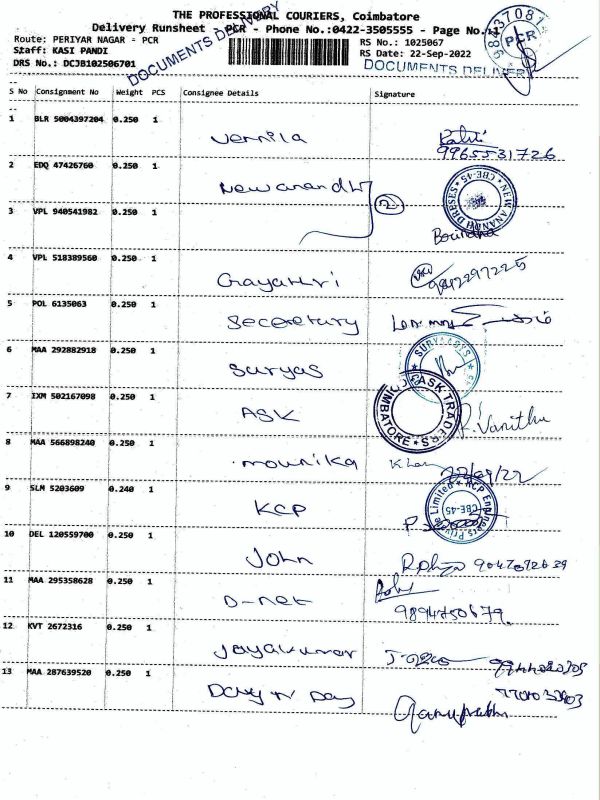 THE PROFESSIONAL COURIERS, Coimbatore
Delivery Runsheet - PCR - Phone No.:0422-3505555 - Page No.:1
Route: PERIYAR NAGAR - PCR
RS No.: 1025067
Staff: KASI PANDI
RS Date: 22-Sep-2022
DRS No.: DCJB102506701
DOCUMENTS DELIVERY
DOCUMENTS DELIVERY
PCR
S No Consignment No Weight PCS Consignee Details Signature
1 BLR 5004397204 0.250 1 Vennila
9965531726
2 EDQ 47426760 0.250 1 New anandh
2
NEW ANANDH DRESSES CBE-45
3 VPL 940541982 0.250 1
4 VPL 518389560 0.250 1 Gayathri
9842297225
5 POL 6135063 0.250 1 Secretary
6 MAA 292882918 0.250 1 Suryas
7 IXM 502167098 0.250 1 ASK R. Vanitha
ASK TRADERS COIMBATORE
8 MAA 566898240 0.250 1 mounika
22/09/22
9 SLM 5203609 0.240 1 KCP
Private Limited KCP CBE-45
10 DEL 120559700 0.250 1 John
11 MAA 295358628 0.250 1 D-net
9894750679.
12 KVT 2672316 0.250 1 Jayakumar
13 MAA 287639520 0.250 1